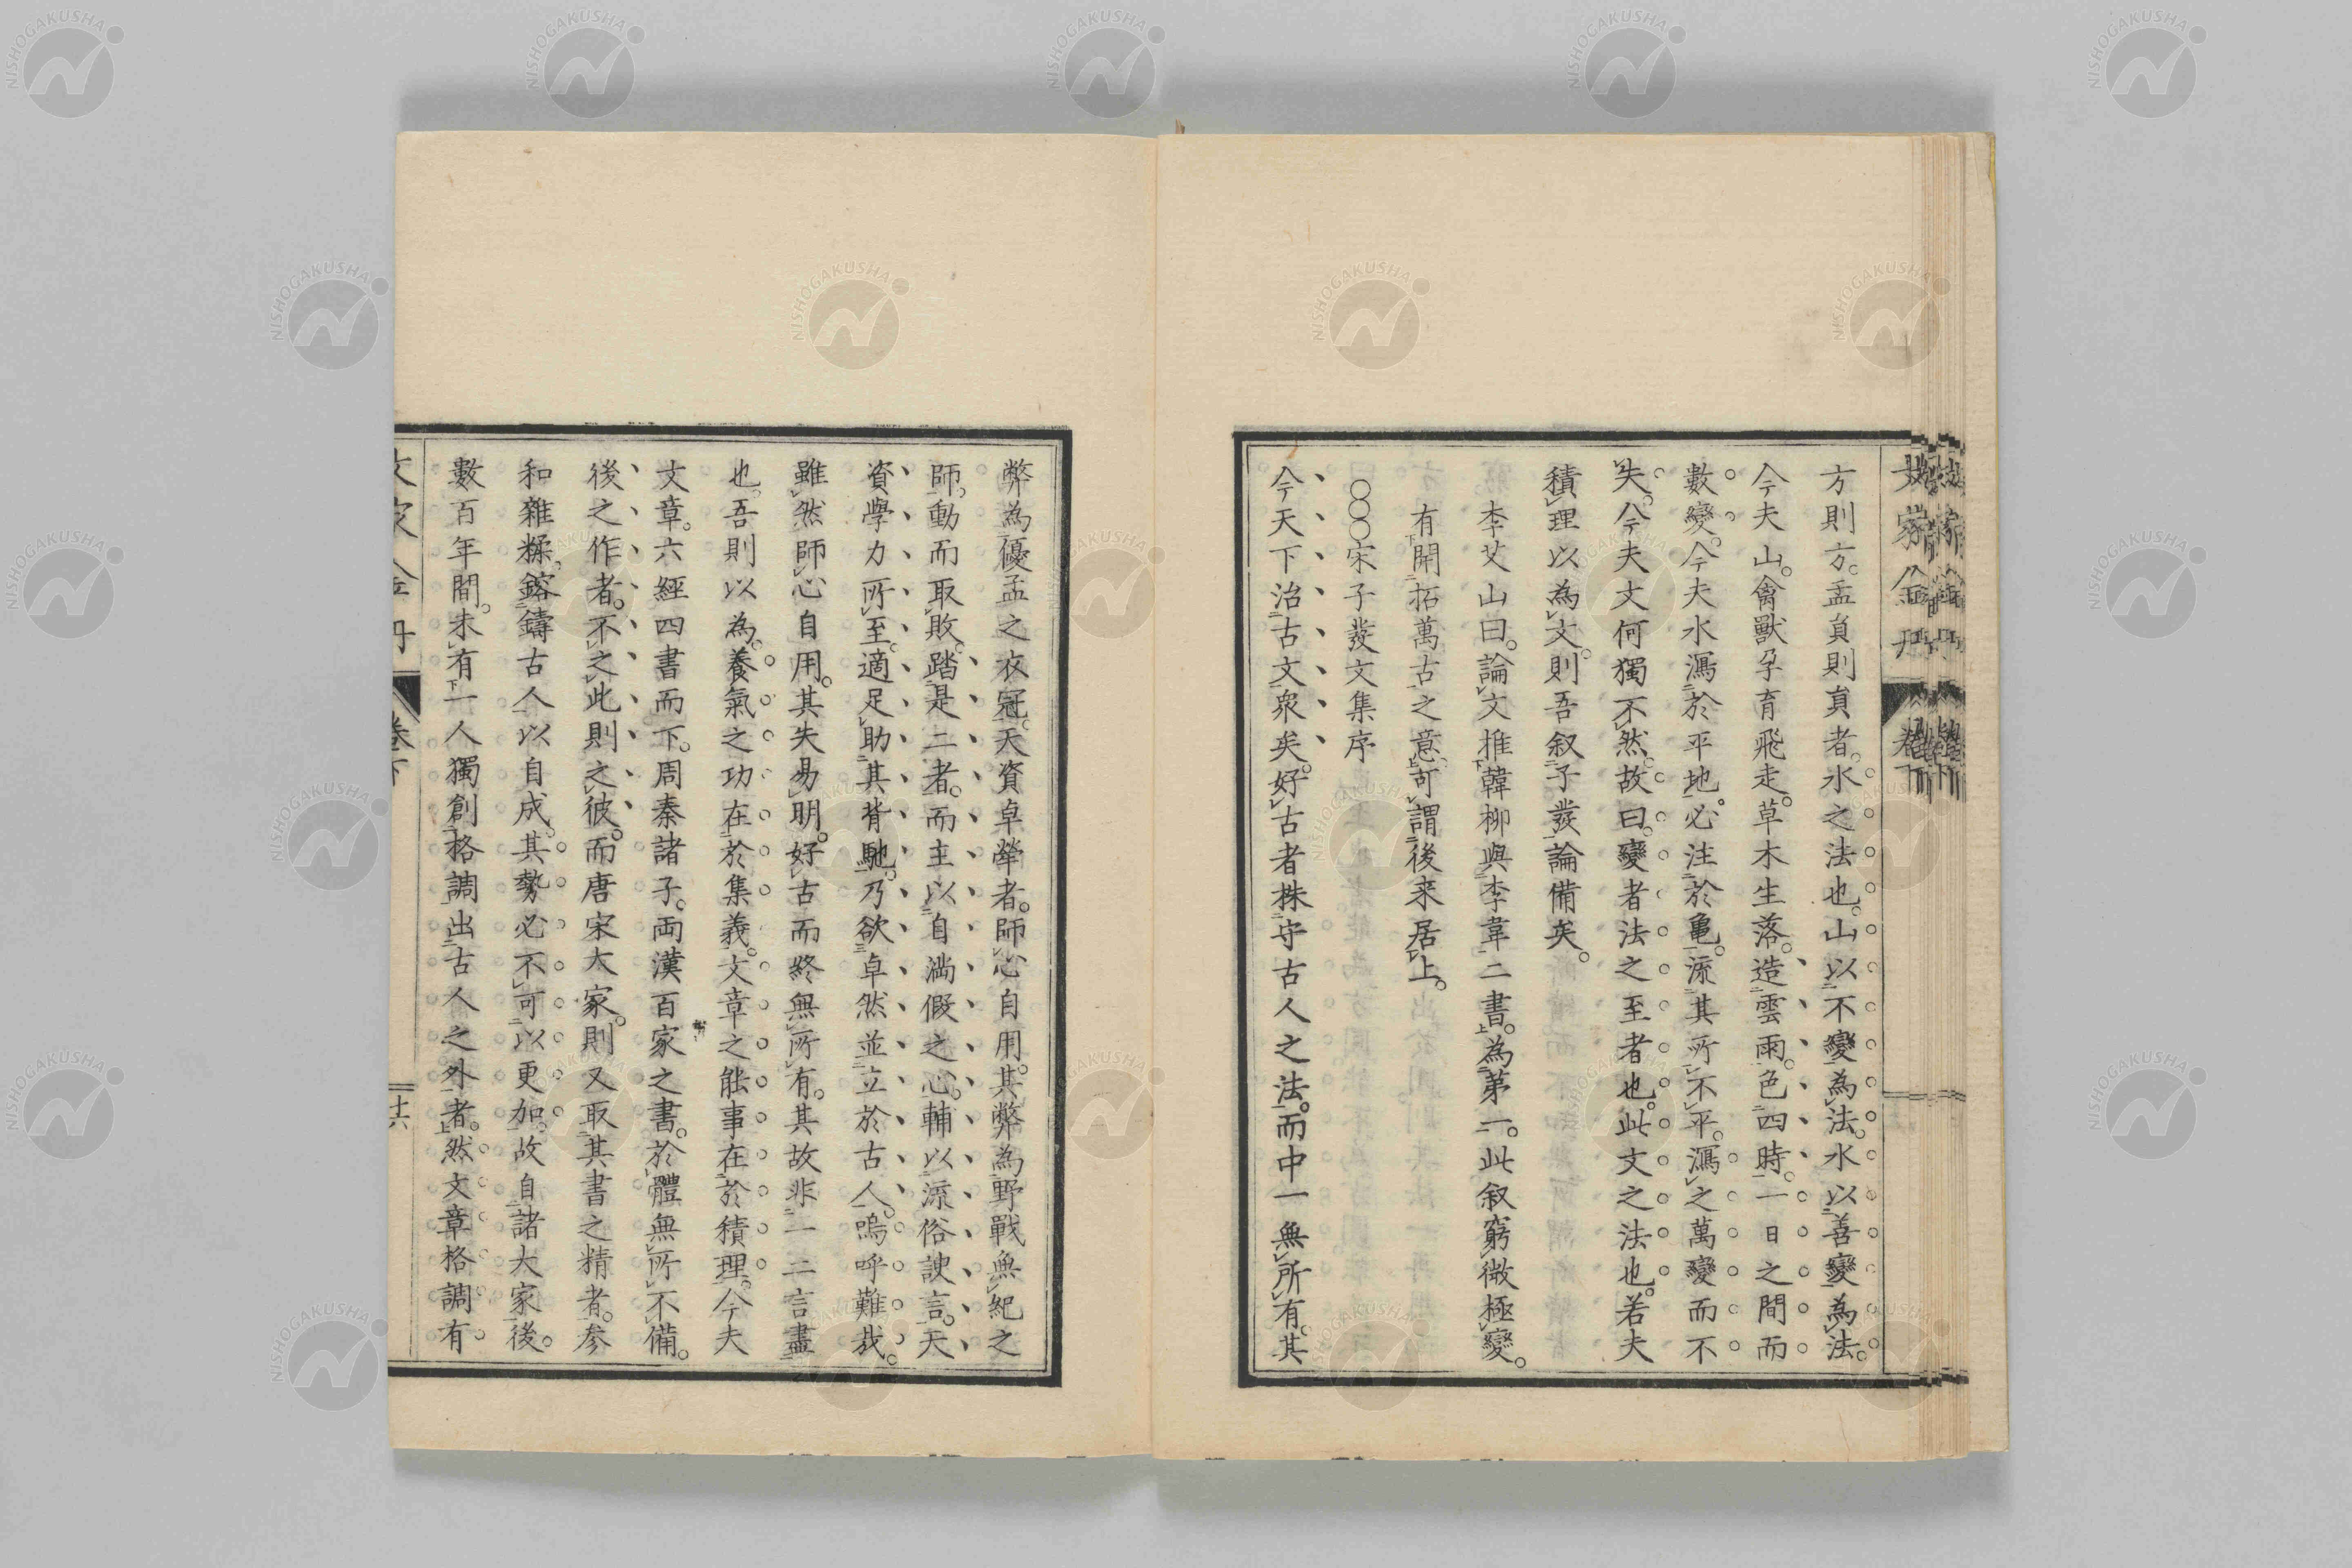 方則方。盂員則員者。水之法也。山以不變為法。水以善變為法。
今夫山。禽獸孕育飛走。草木生落。造雲雨。色四時。一日之間而
數變。今夫水瀉於平地。必注於龜。流其所不平。瀉之萬變而不
失。今夫文何獨不然。故曰。變者法之至者也。此文之法也。若夫
積理以為文。則吾叙子發論備矣。
李艾山曰。論文推韓柳與李韋二書。為第一。此叙窮微極變。
有開拓萬古之意。可謂後来居上。
○○○宋子發文集序
今天下治古文衆矣。好古者株守古人之法。而中一無所有。其
弊為優孟之衣冠。天資卓犖者。師心自用。其弊為野戰無紀之
師。動而取敗。蹈是二者。而主以自満假之心。輔以流俗諛言。天
資學力所至。適足助其背馳。乃欲卓然並立於古人。嗚呼難哉。
雖然師心自用。其失易明。好古而終無所有。其故非一二言盡
也。吾則以為。養氣之功在於集義。文章之能事在於積理。今夫
文章。六經四書而下。周秦諸子。両漢百家之書。於體無所不備。
後之作者。不之此則之彼。而唐宋大家。則又取其書之精者。参
和雜糅。鎔鑄古人以自成。其勢必不可以更加。故自諸大家後。
數百年間。未有一人獨創格調出古人之外者。然文章格調有
文家金丹 卷下
十六
文家金丹 卷下
NISHOGAKUSHA